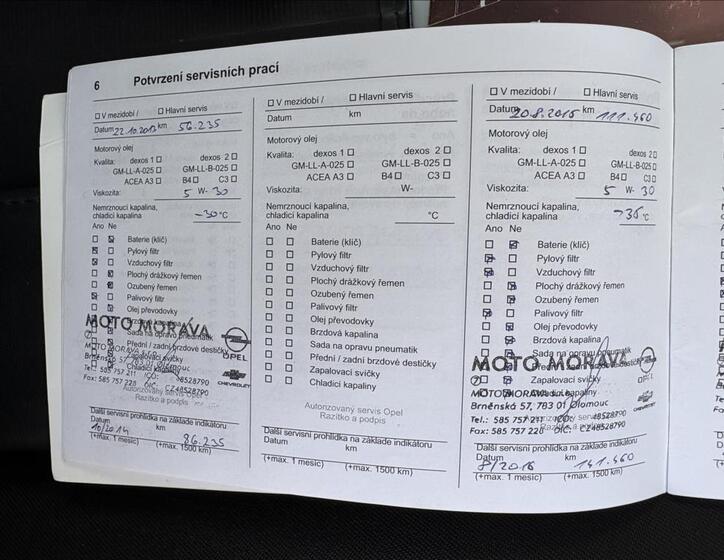 6 Potvrzení servisních prací
☐ V mezidobí / ☐ Hlavní servis
Datum 22.10.2013 km 56.235
Motorový olej
Kvalita: dexos 1 ☐ dexos 2 ☐
GM-LL-A-025 ☐ GM-LL-B-025 ☐
ACEA A3 ☐ B4 ☐ C3 ☐
Viskozita: 5 W- 30
Nemrznoucí kapalina,
chladicí kapalina -30 °C
Ano Ne
Baterie (klíč)
Pylový filtr
Vzduchový filtr
Plochý drážkový řemen
Ozubený řemen
Palivový filtr
Olej převodovky
Brzdová kapalina
Sada na opravu pneumatik
Přední / zadní brzdové destičky
Zapalovací svíčky
Chladicí kapaliny
MOTO MORAVA
OPEL
MOTO MORAVA s.r.o.
Brněnská 57, 783 01 Olomouc
Tel.: 585 757 211 IČO: 48528790
Fax: 585 757 228 DIČ: CZ48528790
CHEVROLET
Autorizovaný servis Opel
Razítko a podpis
Další servisní prohlídka na základě indikátoru
Datum km
10/2014 86.235
(+max. 1 měsíc) (+max. 1500 km)
☐ V mezidobí / ☐ Hlavní servis
Datum km
Motorový olej
Kvalita: dexos 1 ☐ dexos 2 ☐
GM-LL-A-025 ☐ GM-LL-B-025 ☐
ACEA A3 ☐ B4 ☐ C3 ☐
Viskozita: W-
Nemrznoucí kapalina,
chladicí kapalina °C
Ano Ne
☐ ☐ Baterie (klíč)
☐ ☐ Pylový filtr
☐ ☐ Vzduchový filtr
☐ ☐ Plochý drážkový řemen
☐ ☐ Ozubený řemen
☐ ☐ Palivový filtr
☐ ☐ Olej převodovky
☐ ☐ Brzdová kapalina
☐ ☐ Sada na opravu pneumatik
☐ ☐ Přední / zadní brzdové destičky
☐ ☐ Zapalovací svíčky
☐ ☐ Chladicí kapaliny
Autorizovaný servis Opel
Razítko a podpis
Další servisní prohlídka na základě indikátoru
Datum km
(+max. 1 měsíc) (+max. 1500 km)
☐ V mezidobí / ☐ Hlavní servis
Datum 20.8.2015 km 111.460
Motorový olej
Kvalita: dexos 1 ☐ dexos 2 ☐
GM-LL-A-025 ☐ GM-LL-B-025 ☐
ACEA A3 ☐ B4 ☐ C3 ☐
Viskozita: 5 W- 30
Nemrznoucí kapalina,
chladicí kapalina -35 °C
Ano Ne
Baterie (klíč)
Pylový filtr
Vzduchový filtr
Plochý drážkový řemen
Ozubený řemen
Palivový filtr
Olej převodovky
Brzdová kapalina
Sada na opravu pneumatik
Přední / zadní brzdové destičky
Zapalovací svíčky
Chladicí kapaliny
MOTO MORAVA
OPEL
MOTO MORAVA
Brněnská 57, 783 01 Olomouc
Tel.: 585 757 211 IČO: 48528790
Fax: 585 757 228 DIČ: CZ48528790
CHEVROLET
Další servisní prohlídka na základě indikátoru
Datum km
8/2016 141.460
(+max. 1 měsíc) (+max. 1500 km)